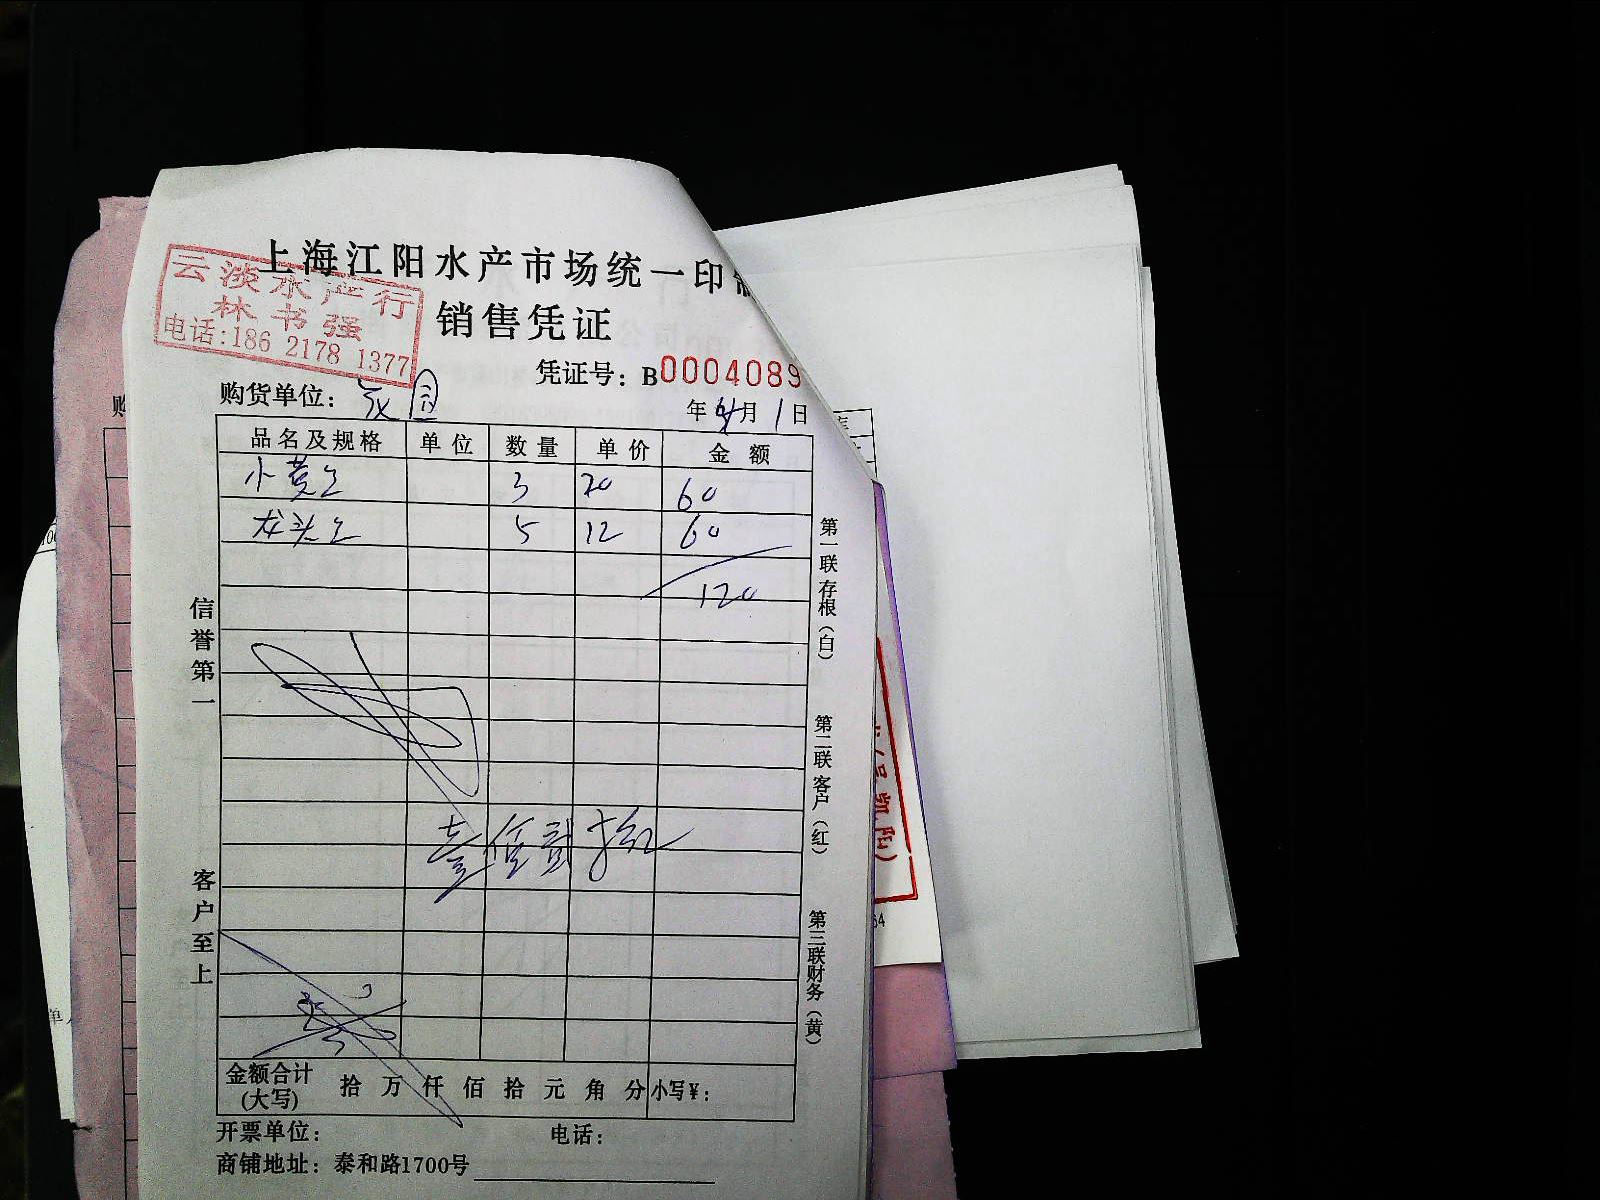 上海江阳水产市场统一印
销售凭证
云淡水产行
林书强
电话:186 2178 1377
凭证号：B0004089
购货单位：
年 4月 1日
品名及规格 单位 数量 单价 金额
小黄鱼 3 20 60
龙头鱼 5 12 60
120
壹佰贰拾
金额合计(大写) 拾 万 仟 佰 拾 元 角 分 小写¥：
开票单位： 电话：
商铺地址：泰和路1700号
信誉第一
客户至上
第一联存根（白）
第二联客户（红）
第三联财务（黄）